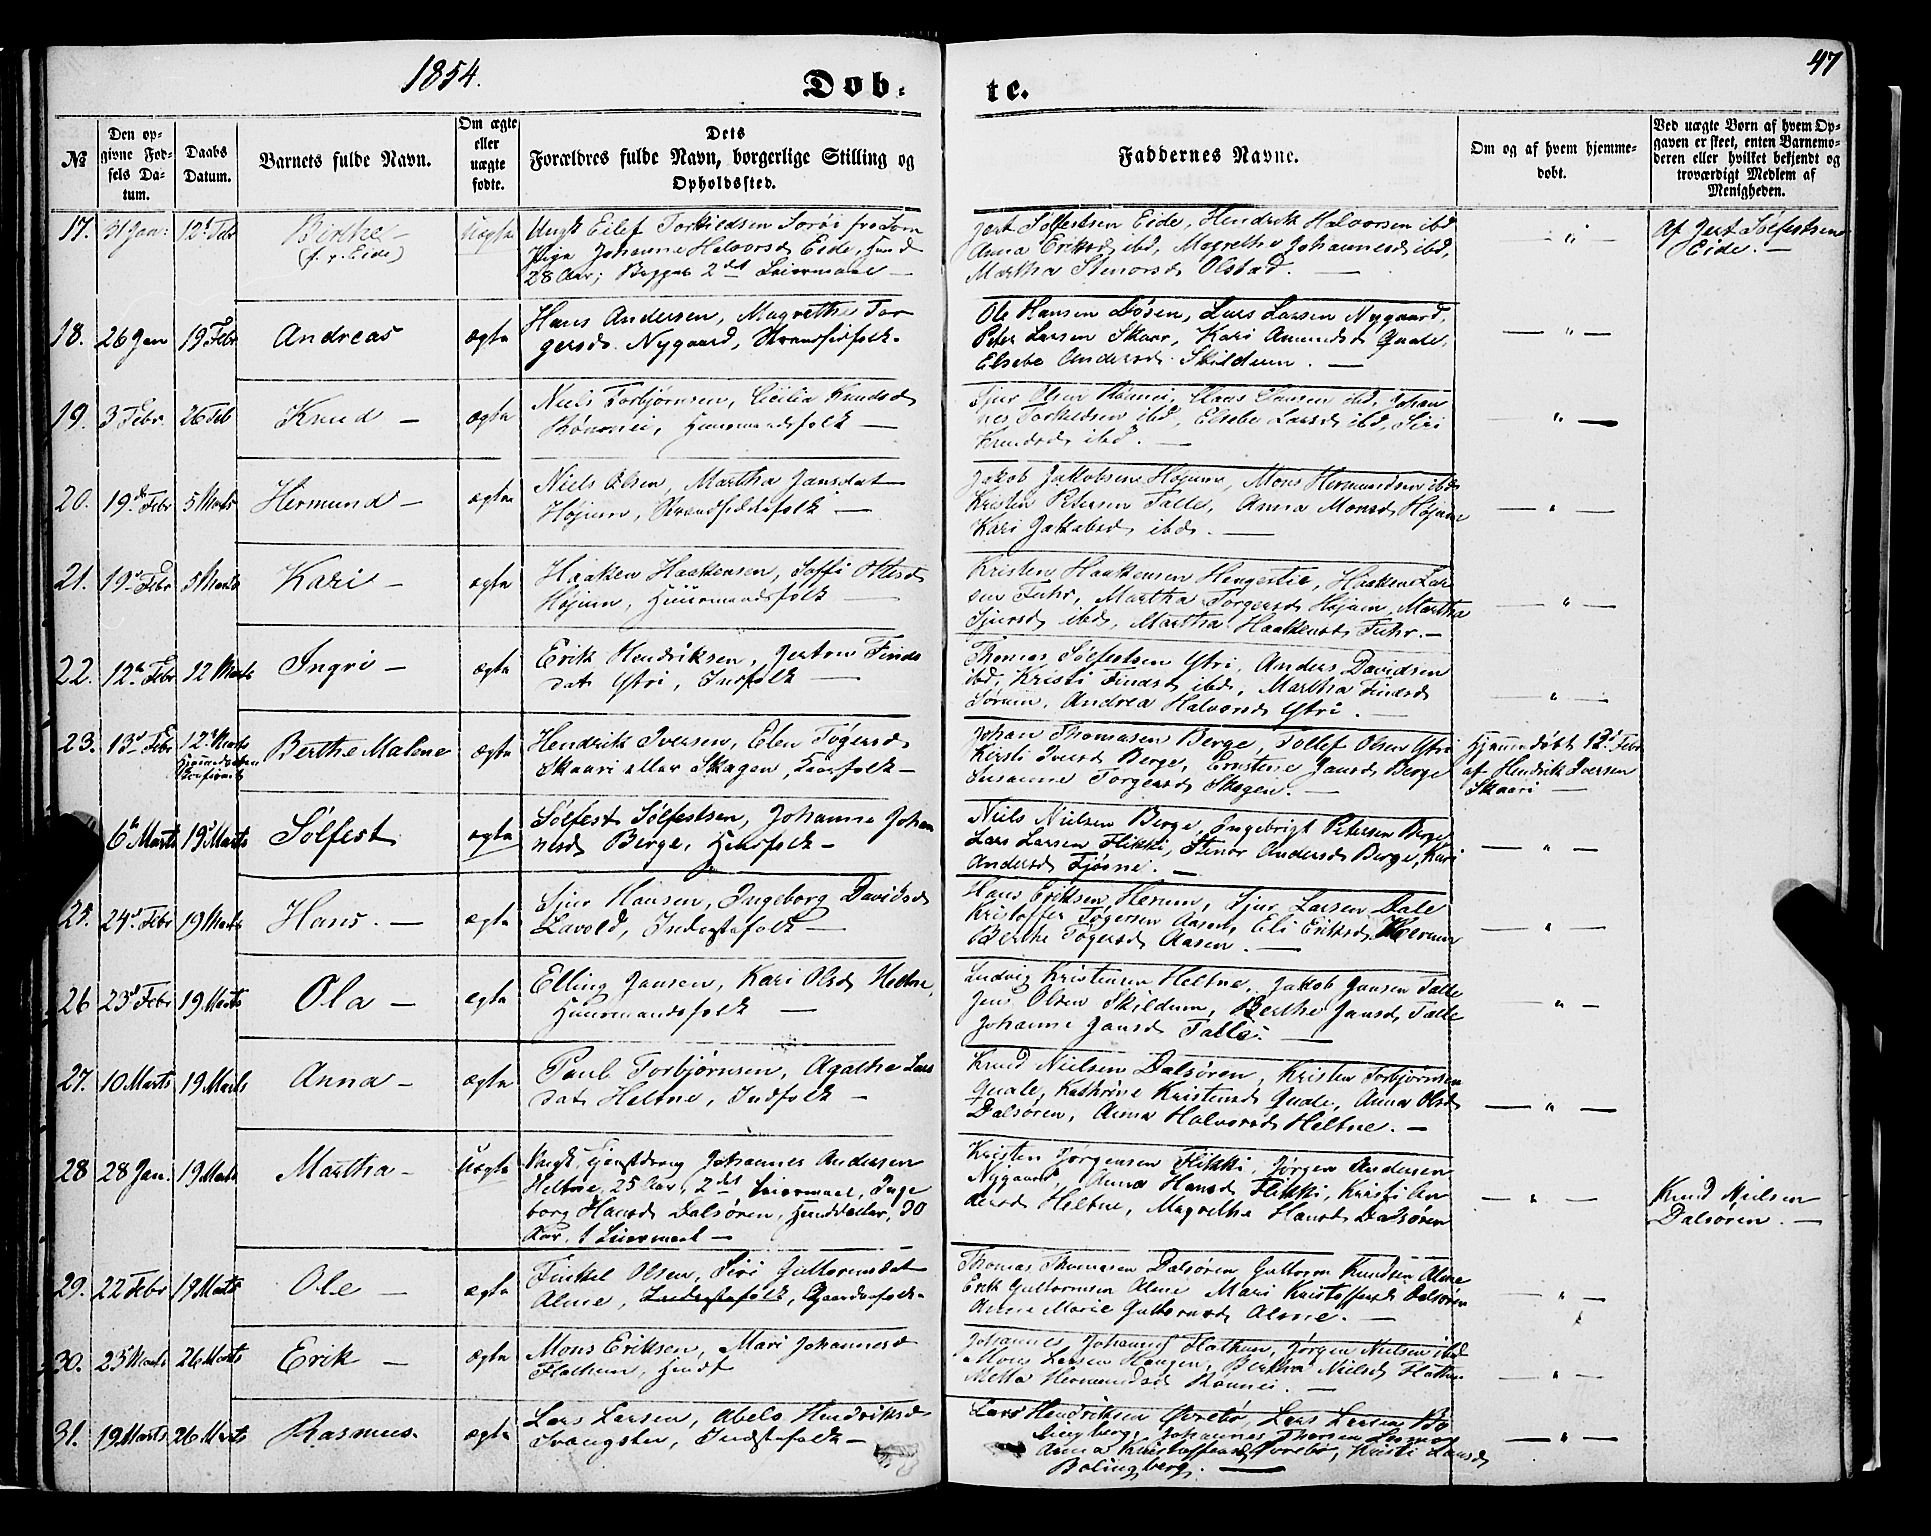 1854.
Døb-
te.
47
№
Den op-
givne Fød-
sels Da-
tum.
Daabs
Datum.
Barnets fulde Navn.
Om ægte
eller
uægte
fødte.
Dets
Forældres fulde Navn, borgerlige Stilling og
Opholdssted.
Faddernes Navne.
Om og af hvem hjemme-
døbt.
Ved uægte Børn af hvem Op-
gaven er skeet, enten Barnemo-
deren eller hvilket bekjendt og
troværdigt Medlem af
Menigheden.
17. 31 Jan: 12te Febr
Birthe
(f. p. Eide)
Uægte
Ungk Eilef Torkildsen Sorøi fra Lom
Pige Johanne Halvorsd Eide,
28 Aar; Begges 2det Leiermaal —
Jert Sølfestsen Eide, Hendrik Halvorsen ibd
Anna Eriksd ibd, Magrethe Johannesd ibd,
Martha Stenorsd Olstad. —
— " —
Af Jert Sølfestsen
Eide. —
18. 26 Jan 19 Febr
Andreas
ægte
Hans Andersen, Magrethe Tor
gersd. Nygaard, Strandsidfolk.
Ole Hansen Døsen, Lars Larsen Nygaard,
Peter Larsen Skaar, Kari Amundsd Quale,
Elsebe Andersd. Skildum. —
— " —
19. 3 Febr 26 Feb
Knud —
ægte
Niels Torbjørnsen, Cicilia Knudsd
Rønnei, Huusmandsfolk —
Sjur Olsen Rønnei, Claus Clausen ibd, Johan
nes Torkildsen ibd, Elsebe Larsd ibd, Siri
Knudsd ibd. —
— " —
20. 19de Febr 5 Marts
Hermund —
ægte
Niels Olsen, Martha Jansdat
Højum, Strandsiddefolk —
Jakob Jakobsen Højum, Mons Hermundsen ibd
Kristen Petersen Talle, Anna Monsd Højum
Kari Jakobsd ibd. —
— " —
21. 19de Febr 5 Marts
Kari —
ægte
Haaken Haakensen, Soffi Ottesd
Højum, Huusmandsfolk —
Kristen Haakensen Hengestie, Haaken Lar
sen Fuhr, Martha Torgersd Højum, Martha
Sjursd ibd, Martha Haakensd Fuhr. —
— " —
22. 12te Febr 12 Marts
Ingri —
ægte
Erik Hendriksen, Jertru Finds
dat Ytri, Indfolk —
Thomas Sølfestsen Ytri, Anders Davidsen
ibd, Kristi Findsd ibd, Martha Findsd
Sørum, Andrea Halvorsd Ytri. —
— " —
23. 13de Febr 12te Marts
Berthe Malene
ægte
Hendrik Iversen, Elen Tøgersd
Skaari eller Skagen, Huusfolk —
Johan Thomasen Berge, Tollef Olsen Ytri
Kirsti Iversd Berge, Ernstine Jansd Berge
Susanne Torgersd Skagen. —
Hjemmedøbt 12te Febr
af Hendrik Iversen
Skaari —
6te Marts 19de Marts
Sølfest
ægte
Sølfest Sølfestsen, Johanne Johan
nesd Berge, Huusfolk —
Niels Nielsen Berge, Ingebrigt Petersen Berge
Lars Larsen Flikki, Stenor Andersd Berge, Kari
Andersd Fjøsne. —
— " —
25. 24de Febr 19 Marts
Hans. —
ægte
Sjur Hansen, Ingeborg Davidsd
Lavold, Inderstefolk —
Hans Eriksen Herum, Sjur Larsen Dale
Kristoffer Tøgersen Aasen, Eli Eriksd Kverum
Berthe Tøgersd Aasen. —
— " —
26 23de Febr 19 Marts
Ola —
ægte
Elling Jansen, Kari Olsd Heltne,
Huusmandsfolk —
Ludvig Kristensen Heltne, Jakob Jansen Talle
Jens Olsen Skildum, Berthe Jansd, Talle
Johanne Jansd Talle. —
— " —
27. 10 Marts 19 Marts
Anna —
ægte
Paul Torbjørnsen, Agathe Lars
dat Heltne, Indfolk —
Knud Nielsen Dalsøren, Kristen Torbjørnsen
Quale, Kathrine Kristensd Quale, Anna Olsd
Dalsøren, Anna Halvorsd Heltne. —
— " —
28 28 Jan. 19 Marts
Martha —
Uægte
Ungk, Tjenstdreng Johannes Andersen
Heltne, 25 Aar, 2det Leiermaal, Inge
borg Hansd Dalsøren, Huusdatter, 30
Aar, 1 Leiermaal —
Kristen Jørgensen Flikki, Jørgen Andersen
Nygaard, Anna Hansd Flikki, Kristi An
dersd Heltne, Magrethe Hansd Dalsøren
— " —
Knud Nielsen
Dalsøren. —
29. 22 Febr 19 Marts
Ole —
ægte
Finkel Olsen, Siri Guttormsdat
Alme, Inderstefolk, Gaardmfolk.
Thomas Thomasen Dalsøren, Guttorm Knudsen Alme
Erik Guttormsen Alme Mari Kristoffersd Dalsøren
Anne Marie Guttormsd Alme. —
— " —
30. 25 Marts 26 Marts
Erik —
ægte
Mons Eriksen, Mari Johannesd
Flathum, Huusf
Johannes Johannes Flathum, Jørgen Nielsen ibd
Mons Larsen Haugen, Berthe Nielsd Flathum
Metta Hermundsd Rønnei. —
— " —
31. 19 Marts 26 Marts
Rasmus.
ægte
Lars Larsen, Abelo Hendriksd
Svangstu, Inderstefolk —
Lars Hendriksen Øvrebø, Lars Larsen Bo
lingberg, Johannes Thorsen
Anna Kristoffersd Øvrebø, Kristi Larsd
Bolingberg. —
— " —